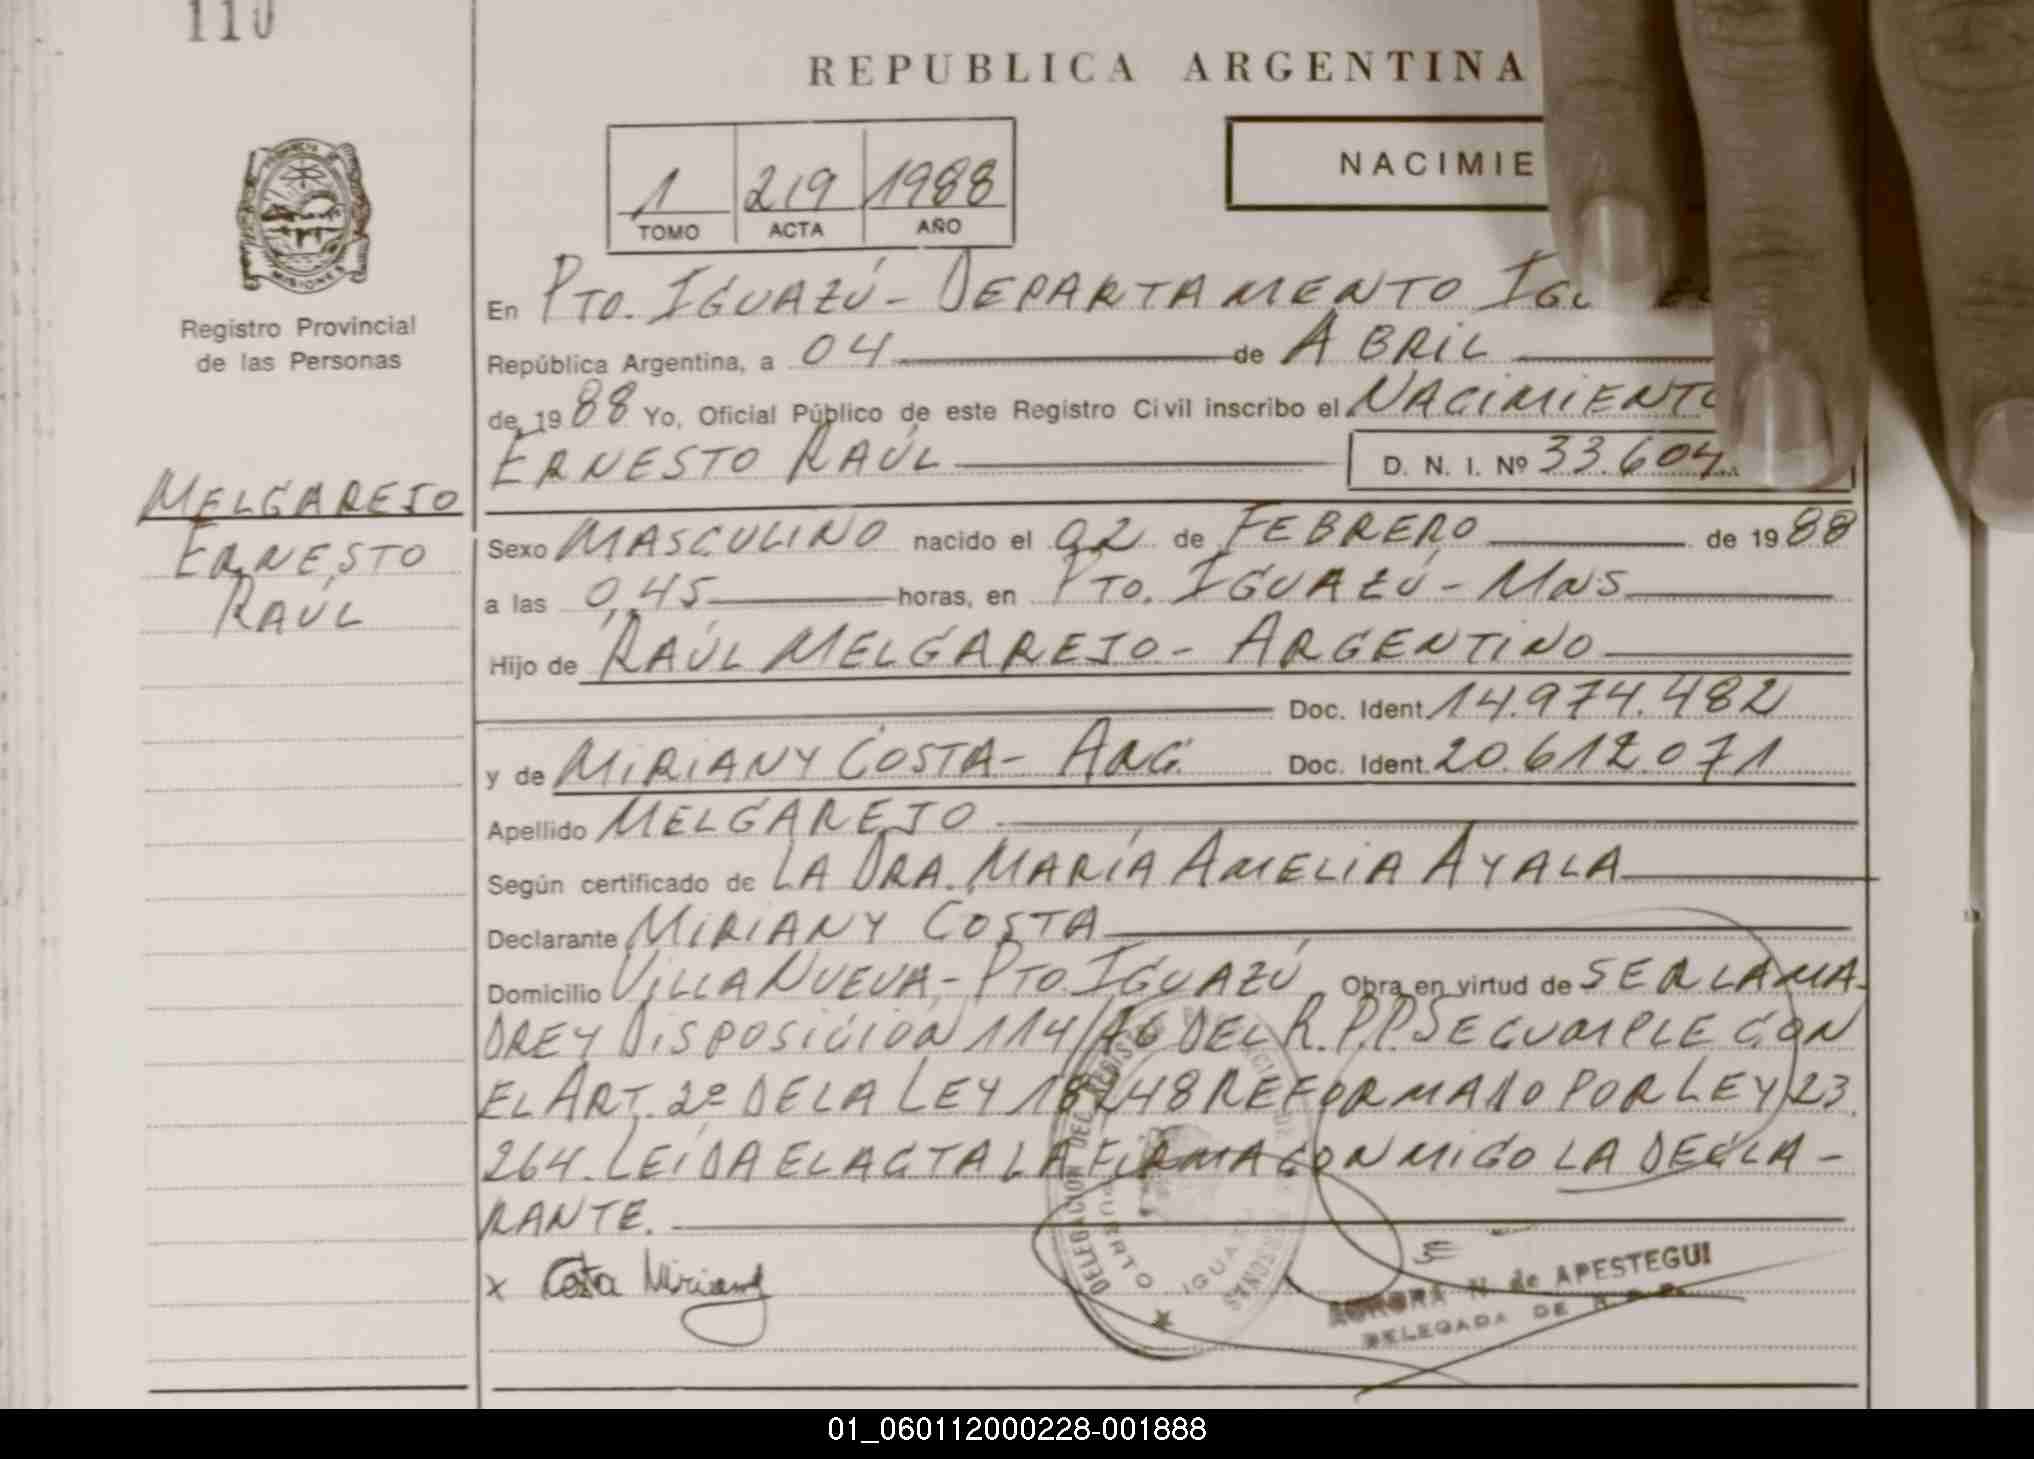 110
REPUBLICA ARGENTINA
NACIMIE
1 219 1988
TOMO ACTA AÑO
PROVINCIA DE
MISIONES
Registro Provincial
de las Personas
MELGAREJO
ERNESTO
RAÚL
En PTO. IGUAZÚ - DEPARTAMENTO
República Argentina, a 04 de ABRIL
de 1988 Yo, Oficial Público de este Registro Civil inscribo el NACIMIENTO
ERNESTO RAÚL D. N. I. Nº 33.604.
Sexo MASCULINO nacido el 02 de FEBRERO de 1988
a las 0,45 horas, en PTO. IGUAZÚ - MNS
Hijo de RAÚL MELGAREJO - ARGENTINO
Doc. Ident. 14.974.482
y de MIRIANY COSTA - ARG. Doc. Ident. 20.612.071
Apellido MELGAREJO
Según certificado de LA DRA. MARÍA AMELIA AYALA
Declarante MIRIANY COSTA
Domicilio VILLA NUEVA - PTO. IGUAZÚ Obra en virtud de SER LA MA-
DRE Y DISPOSICIÓN 114/76 DEL R.P.P. SE CUMPLE CON
EL ART. 2º DE LA LEY 18248 REFORMADO POR LEY 23.
264. LEÍDA EL ACTA LA FIRMA CONMIGO LA DECLA-
RANTE.
x Costa Miriany
DELEGACION DEL REGISTRO PROVINCIAL
IGUAZU
MISIONES
N. de APESTEGUI
DELEGADA DE R. P. P.
01_060112000228-001888